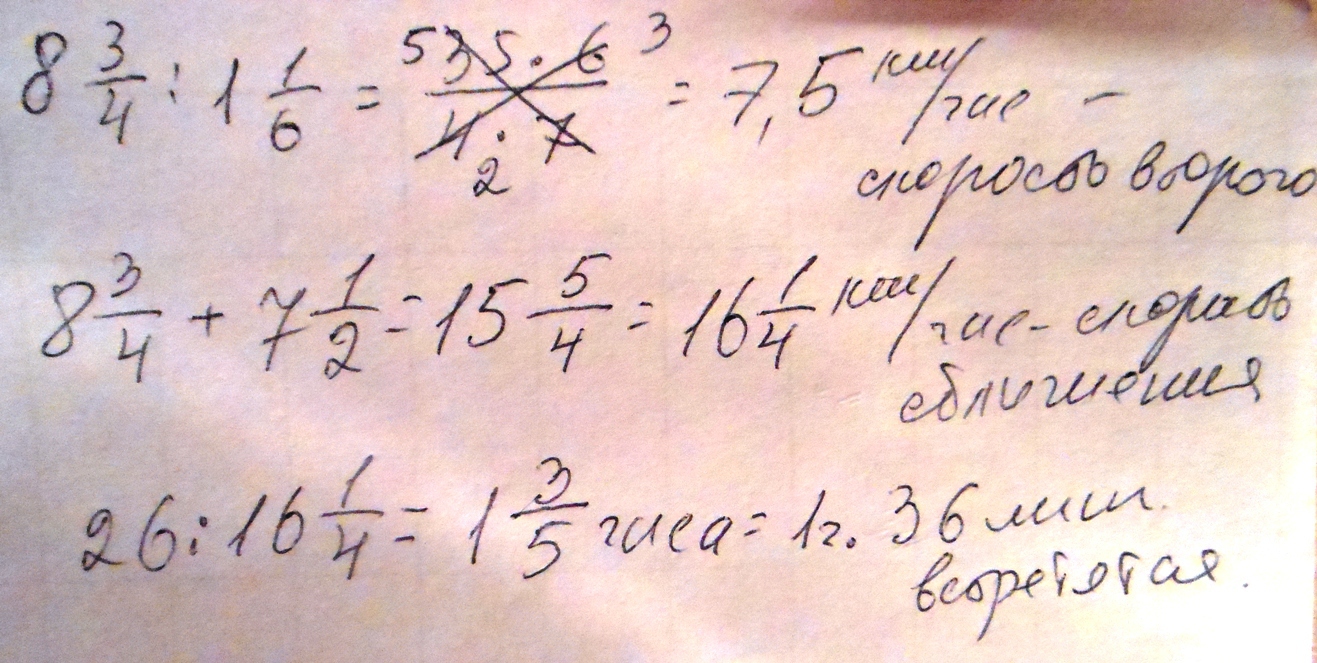 8 3/4 : 1 1/6 = 5 35 · 6 3 / 4 · 7 2 = 7,5 км/час –
скорость второго
8 3/4 + 7 1/2 = 15 5/4 = 16 1/4 км/час - скорость
сближения
26 : 16 1/4 = 1 3/5 часа = 1 ч. 36 мин.
встретятся.